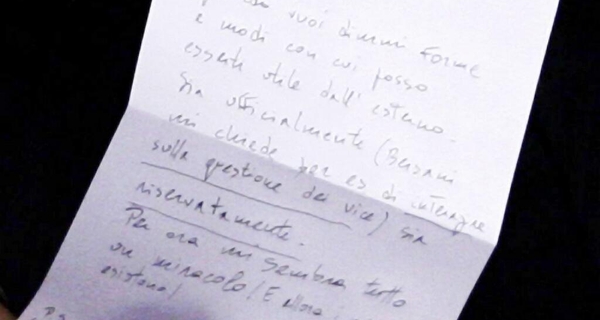 vuoi dirmi forme
e modi con cui posso
esserti utile dall'esterno.
Sia ufficialmente (Bersani
mi chiede per es di interagire
sulla questione dei vice) sia
riservatamente.
Per ora mi sembra tutto
un miracolo! E allora i
esistono!